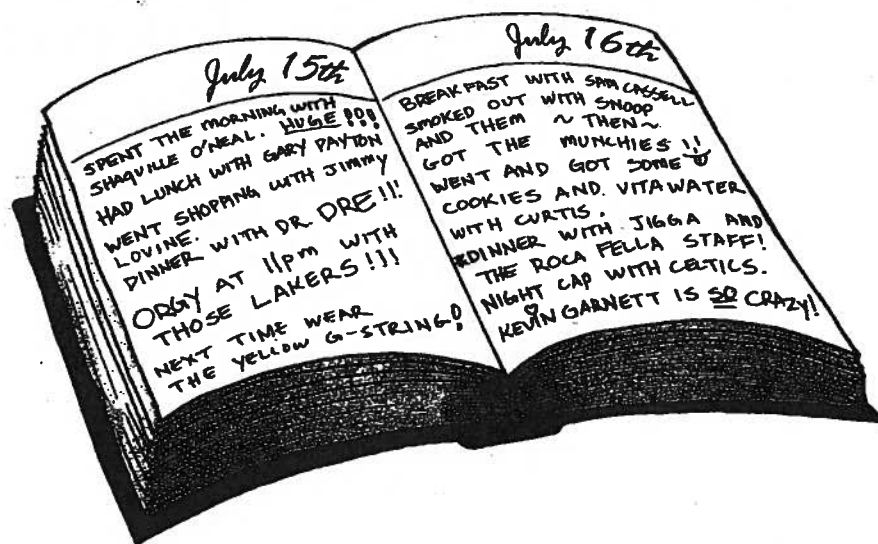 July 15th
SPENT THE MORNING WITH
SHAQUILLE O'NEAL. HUGE !!!
HAD LUNCH WITH GARY PAYTON
WENT SHOPPING WITH JIMMY
LOVINE.
DINNER WITH DR DRE!!!
ORGY AT 11pm WITH
THOSE LAKERS!!!
NEXT TIME WEAR
THE YELLOW G-STRING!
July 16th
BREAKFAST WITH SAM CASSELL
SMOKED OUT WITH SNOOP
AND THEM ~ THEN ~
GOT THE MUNCHIES !!
WENT AND GOT SOME
COOKIES AND. VITAWATER
WITH CURTIS.
*DINNER WITH JIGGA AND
THE ROCA FELLA STAFF!
NIGHT CAP WITH CELTICS.
KEVIN GARNETT IS SO CRAZY!